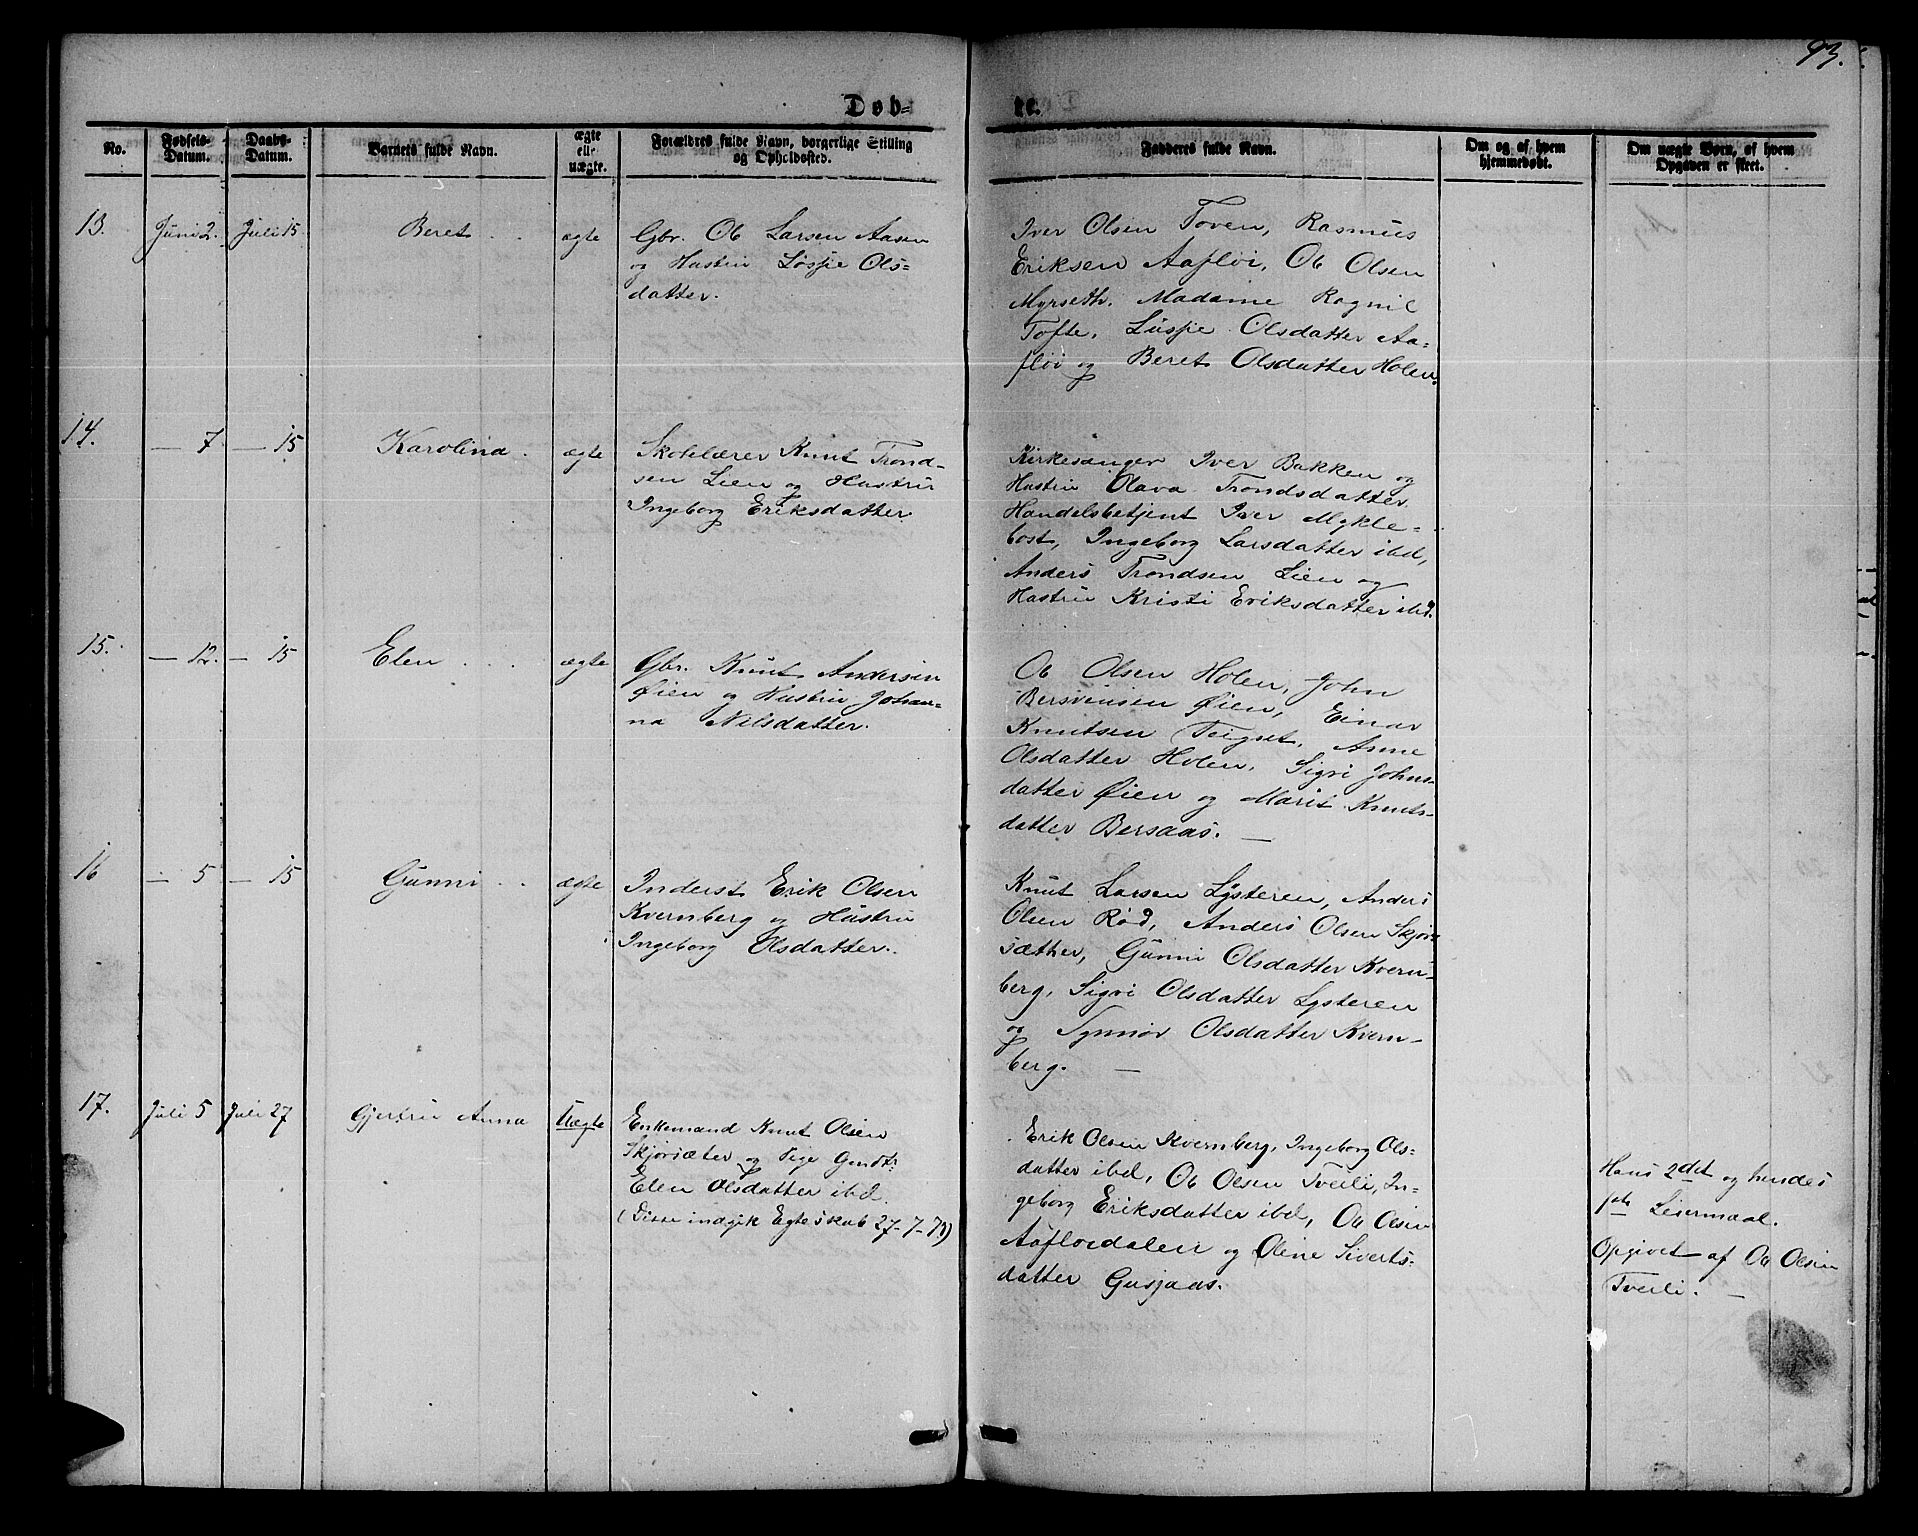 93.
Døb-
te.
No.
Fødsels-
Datum.
Daabs-
Datum.
Barnets fulde Navn.
ægte
ell.
uægte.
Forældres fulde Navn, borgerlige Stilling
og Opholdssted.
Fadderes fulde Navn.
Om og af hvem
hjemmedøbt.
Om uægte Børn, af hvem
Opgaven er skeet.
13.
Juni 2.
Juli 15
Beret
ægte
Gbr. Ob Larsen Aasen
og Hustru Løssie Ols=
datter.
Iver Olsen Toven, Rasmus
Eriksen Aafløi, Ob Olsen
Myrseth. Madame Ragnil
Tofte, Lussie Olsdatter Aa=
fløi og Beret Olsdatter Holen.
14.
— 7
— 15
Karolina
ægte
Skolelærer Knut Trond-
sen Lien og Hustru
Ingeborg Eriksdatter
Kirkesanger Iver Bakken og
Hustru Olava Trondsdatter
Handelsbetjent Iver Mykle-
bost, Ingeborg Larsdatter ibd,
Anders Trondsen Lien og
Hustru Kristi Eriksdatter ibd.
15.
— 12.
— 15
Elen
ægte
Gbr. Knut Andersen
Øien og Hustru Johan-
na Nilsdatter.
Ob Olsen Holen, John
Bersvensen Øien, Einar
Knutsen Teignet, Anne
Olsdatter Holen, Sigri Johns-
datter Øien og Marit Knuts-
datter Bersaas. —
16
— 5
— 15
Gunni
ægte
Inderst Erik Olsen
Kvernberg og Hustru
Ingeborg Olsdatter.
Knut Larsen Lysteren, Anders
Olsen Rød, Anders Olsen Skjør=
sæther, Gunni Olsdatter Kvern-
berg, Sigri Olsdatter Lysteren
og Synnøv Olsdatter Kvern-
berg. —
17.
Juli 5
Juli 27
Gjertru Anna
Uægte
Enkemand Knut Olsen
Skjørsæter og Pige Gundt:
Elen Olsdatter ibd.
(Disse indgik Egteskab 27-7-73)
Erik Olsen Kvernberg, Ingeborg Ols=
datter ibd, Ob Olsen Tveili, In-
geborg Eriksdatter ibd, Ob Olsen
Aafloidalen og Oline Siverts-
datter Gusjaas.
Hans 2det og hendes
1ste Leiermaal.
Opgivet af Ob Olsen
Tveili. —